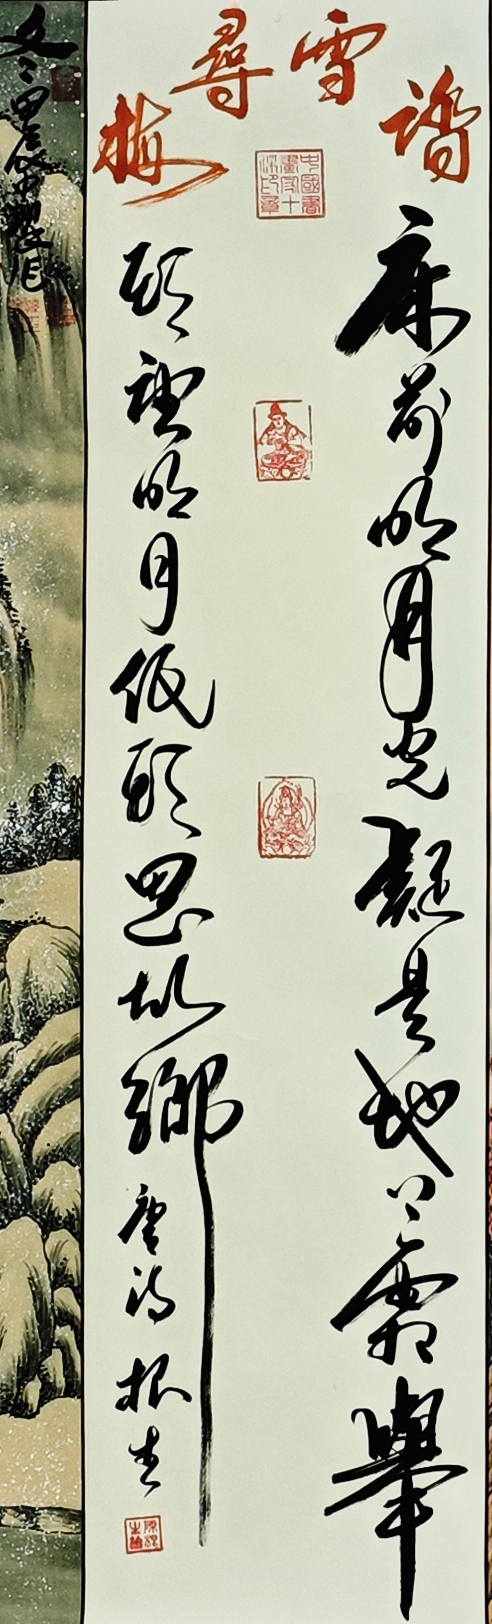 踏雪尋梅
床前明月光疑是地上霜舉
頭望明月低頭思故鄉
唐詩 根生
甲辰